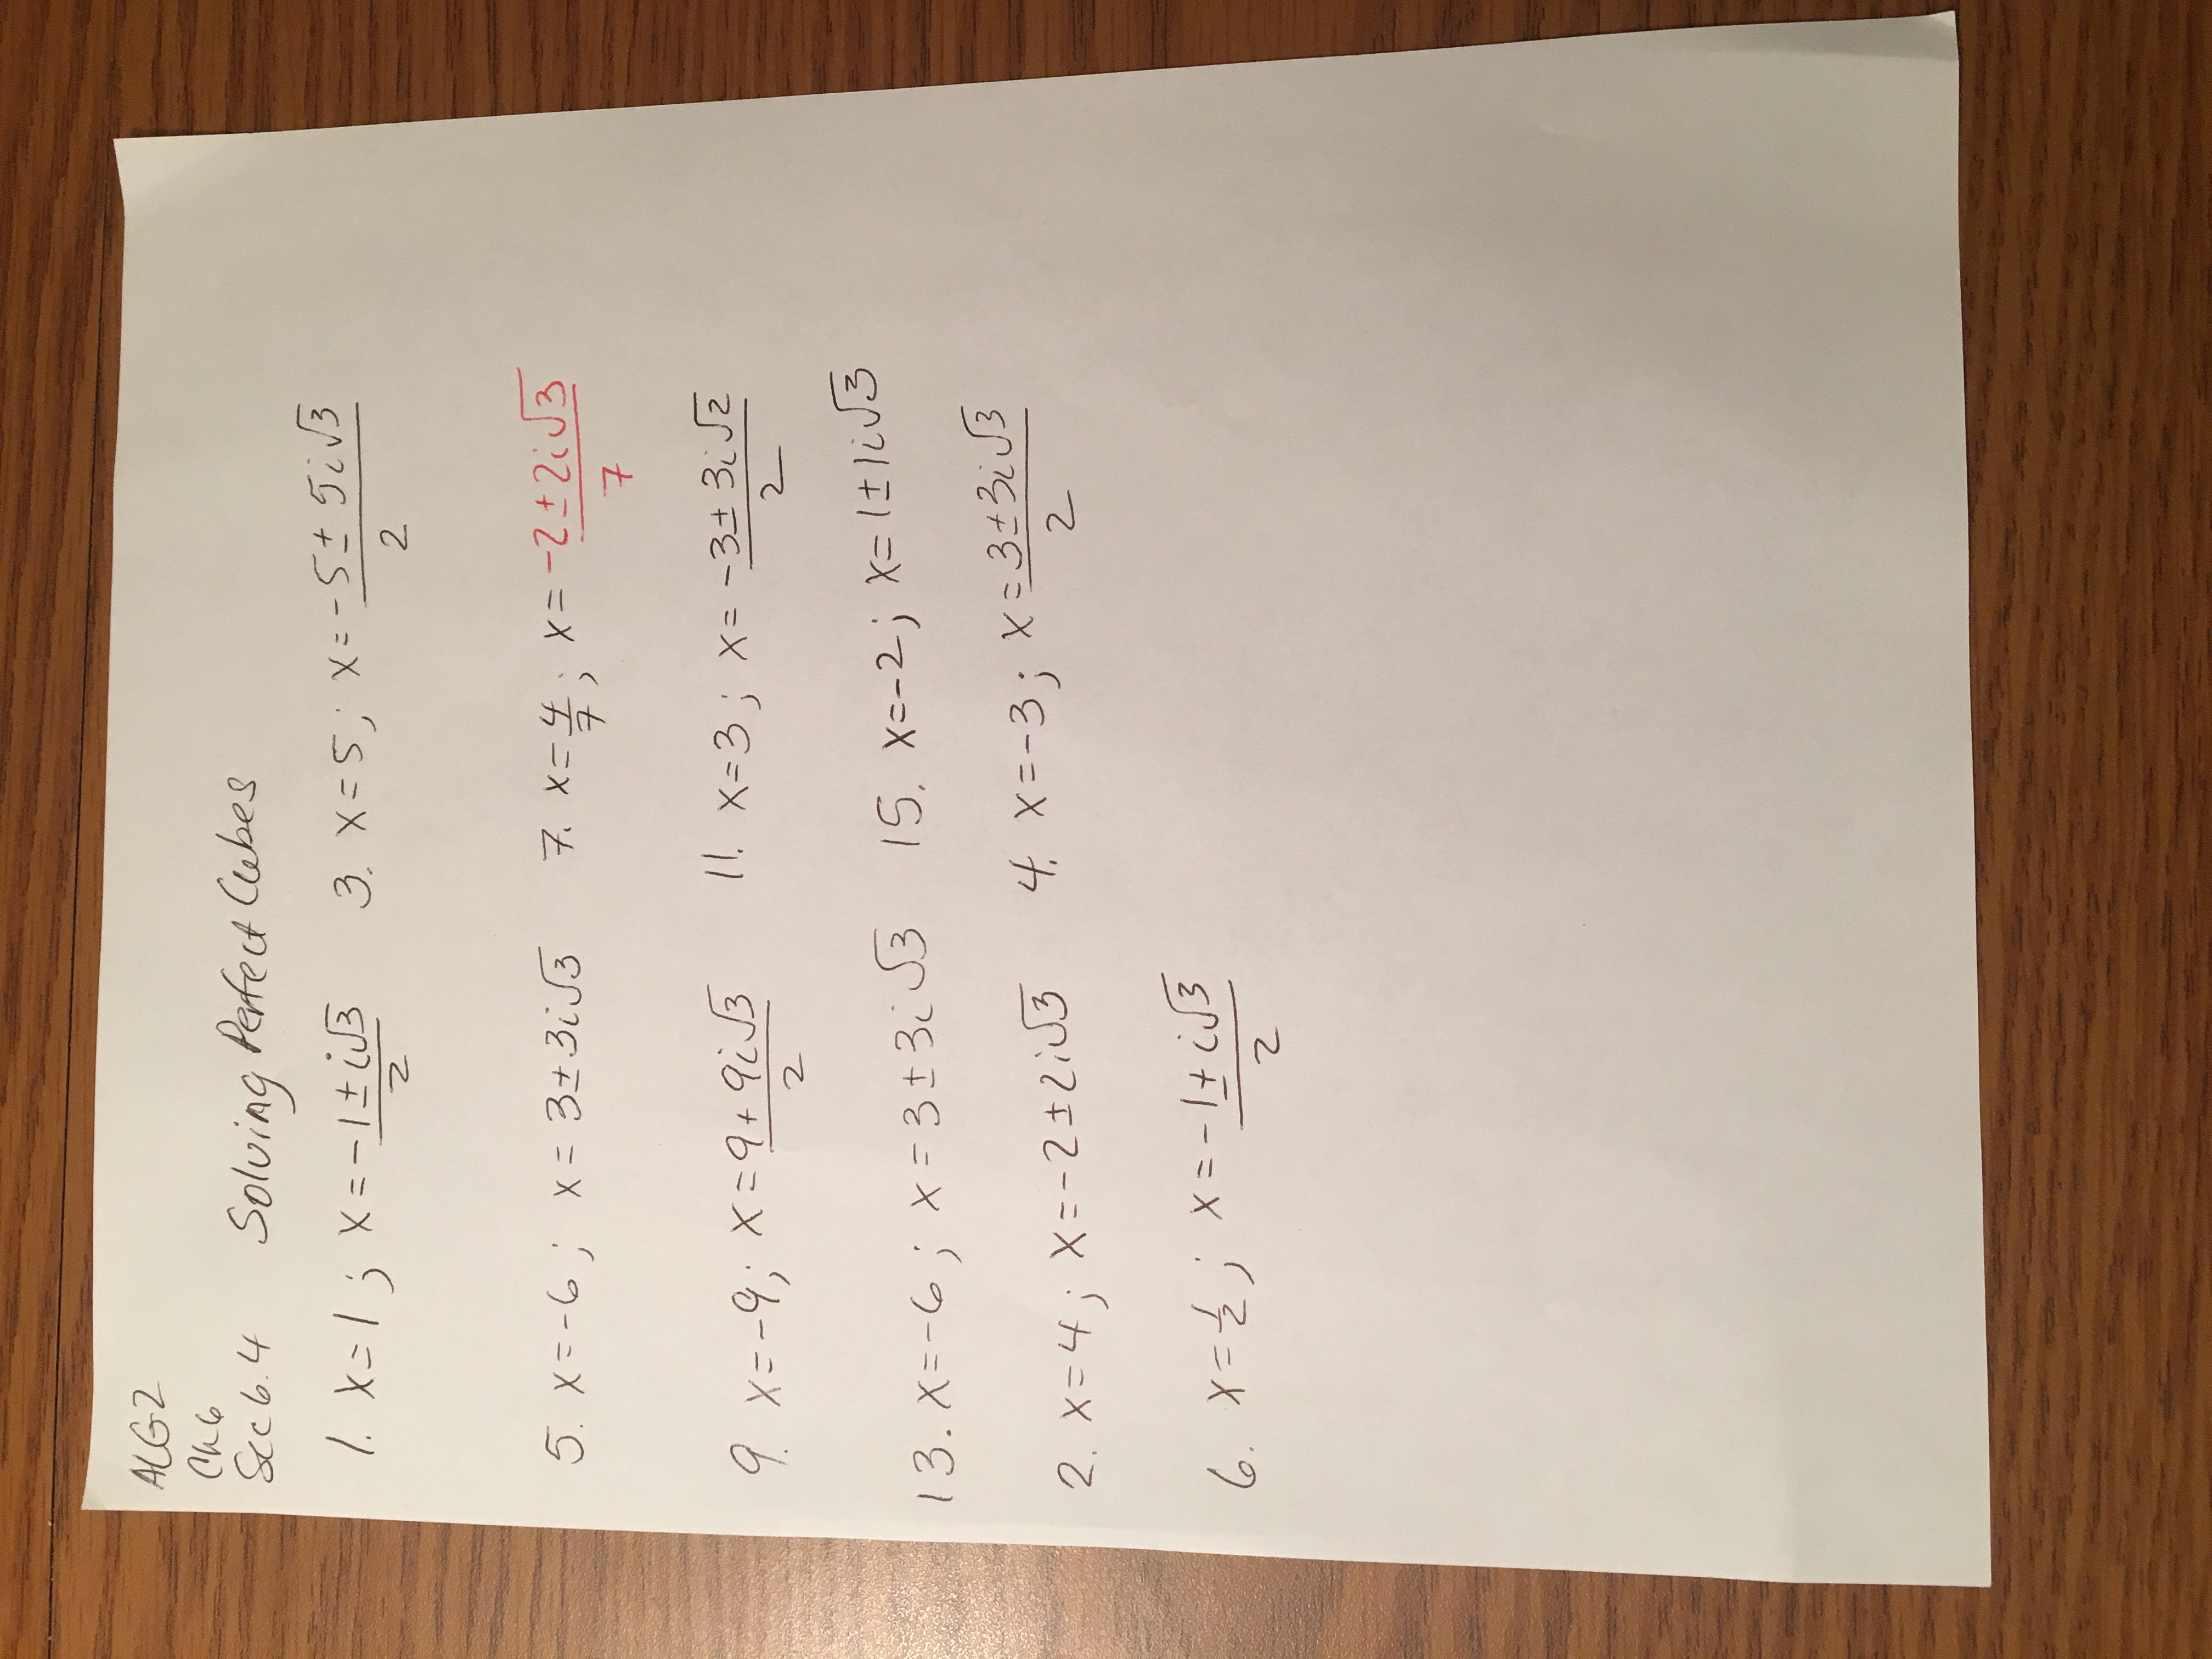 ALG2
Ch6
Sec 6.4 Solving Perfect Cubes
1. x=1; x=-1±i√3/2 3. x=5; x=-5±5i√3/2
5. x=-6; x=3±3i√3 7. x=4/7; x=-2±2i√3/7
9. x=-9; x=9±9i√3/2 11. x=3; x=-3±3i√2/2
13. x=-6; x=3±3i√3 15. x=-2; x=1±1i√3
2. x=4; x=-2±2i√3 4. x=-3; x=3±3i√3/2
6. x=1/2; x=-1±i√3/2